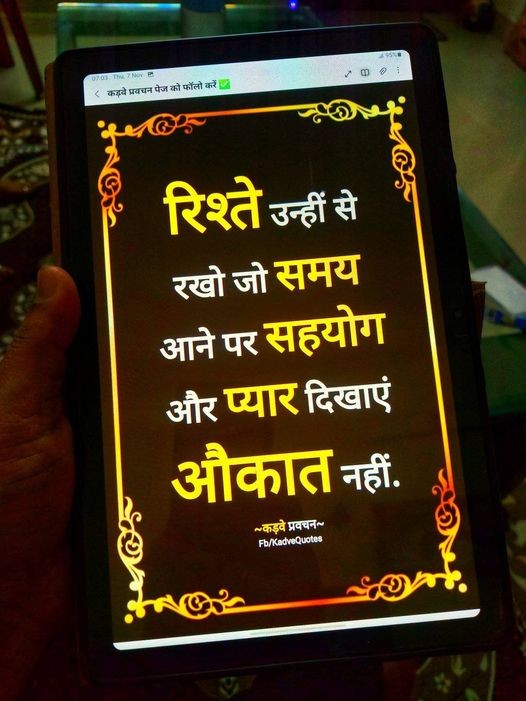 07:03 Thu, 7 Nov
95%
कड़वे प्रवचन पेज को फॉलो करें ✅
रिश्ते उन्हीं से
रखो जो समय
आने पर सहयोग
और प्यार दिखाएं
औकात नहीं.
~कड़वे प्रवचन~
Fb/KadveQuotes